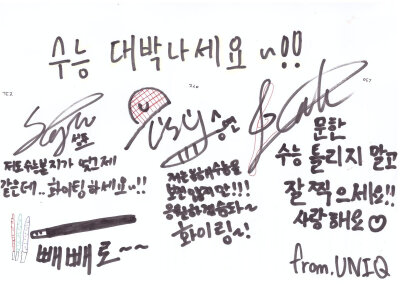 수능 대박나세요~!!
성주
저도 수능본지가 엊그제
같은데.. 화이팅하세요~!!
빼빼로~~
승연
보진 않지만!!!
응원하겠습니다~
화이팅~!
문한
수능 틀리지 말고
잘 찍으세요!!
사랑해요♡
from. UNIQ